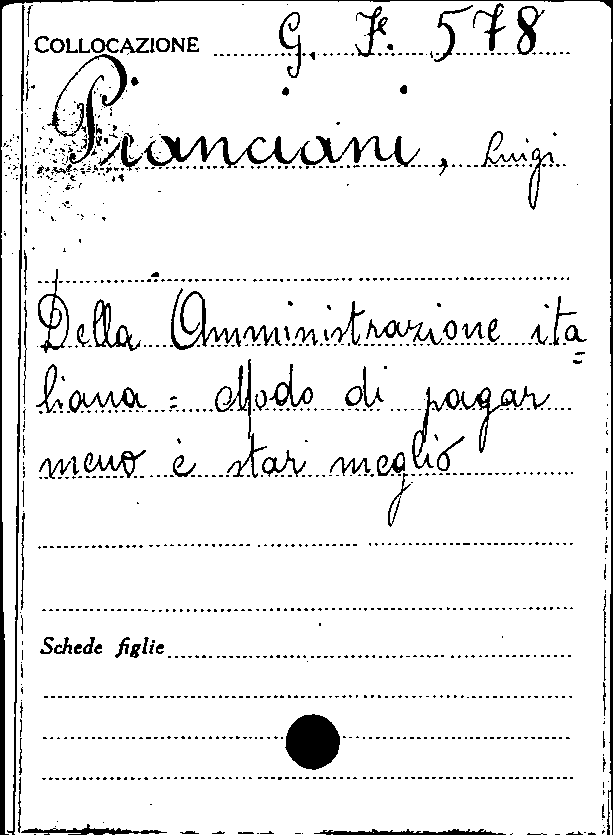 COLLOCAZIONE G. F. 578
Pianciani, Luigi
Della Amministrazione ita=
liana = Modo di pagar
meno è star meglio
Schede figlie